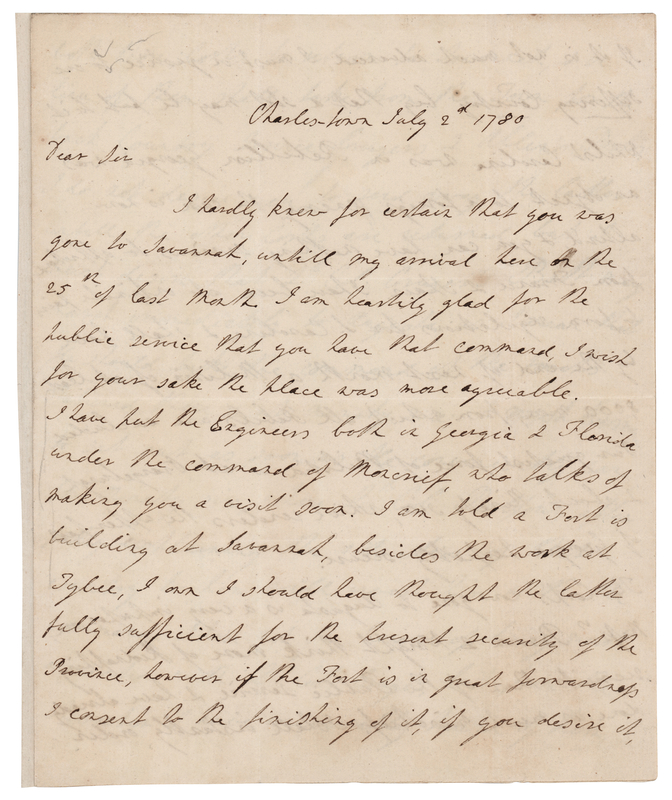 Charles-town July 2d 1780
Dear Sir
I hardly knew for certain that you was
gone to Savannah, untill my arrival here on the
25th of last Month. I am heartily glad for the
public service that you have that command, I wish
for your sake the place was more agreeable.
I have put the Engineers both in Georgia & Florida
under the command of Moncrief, who talks of
making you a visit soon. I am told a Fort is
building at Savannah, besides the work at
Tybee, I own I should have thought the latter
fully sufficient for the present security of the
Province, however if the Fort is in great forwardness
I consent to the finishing of it, if you desire it,